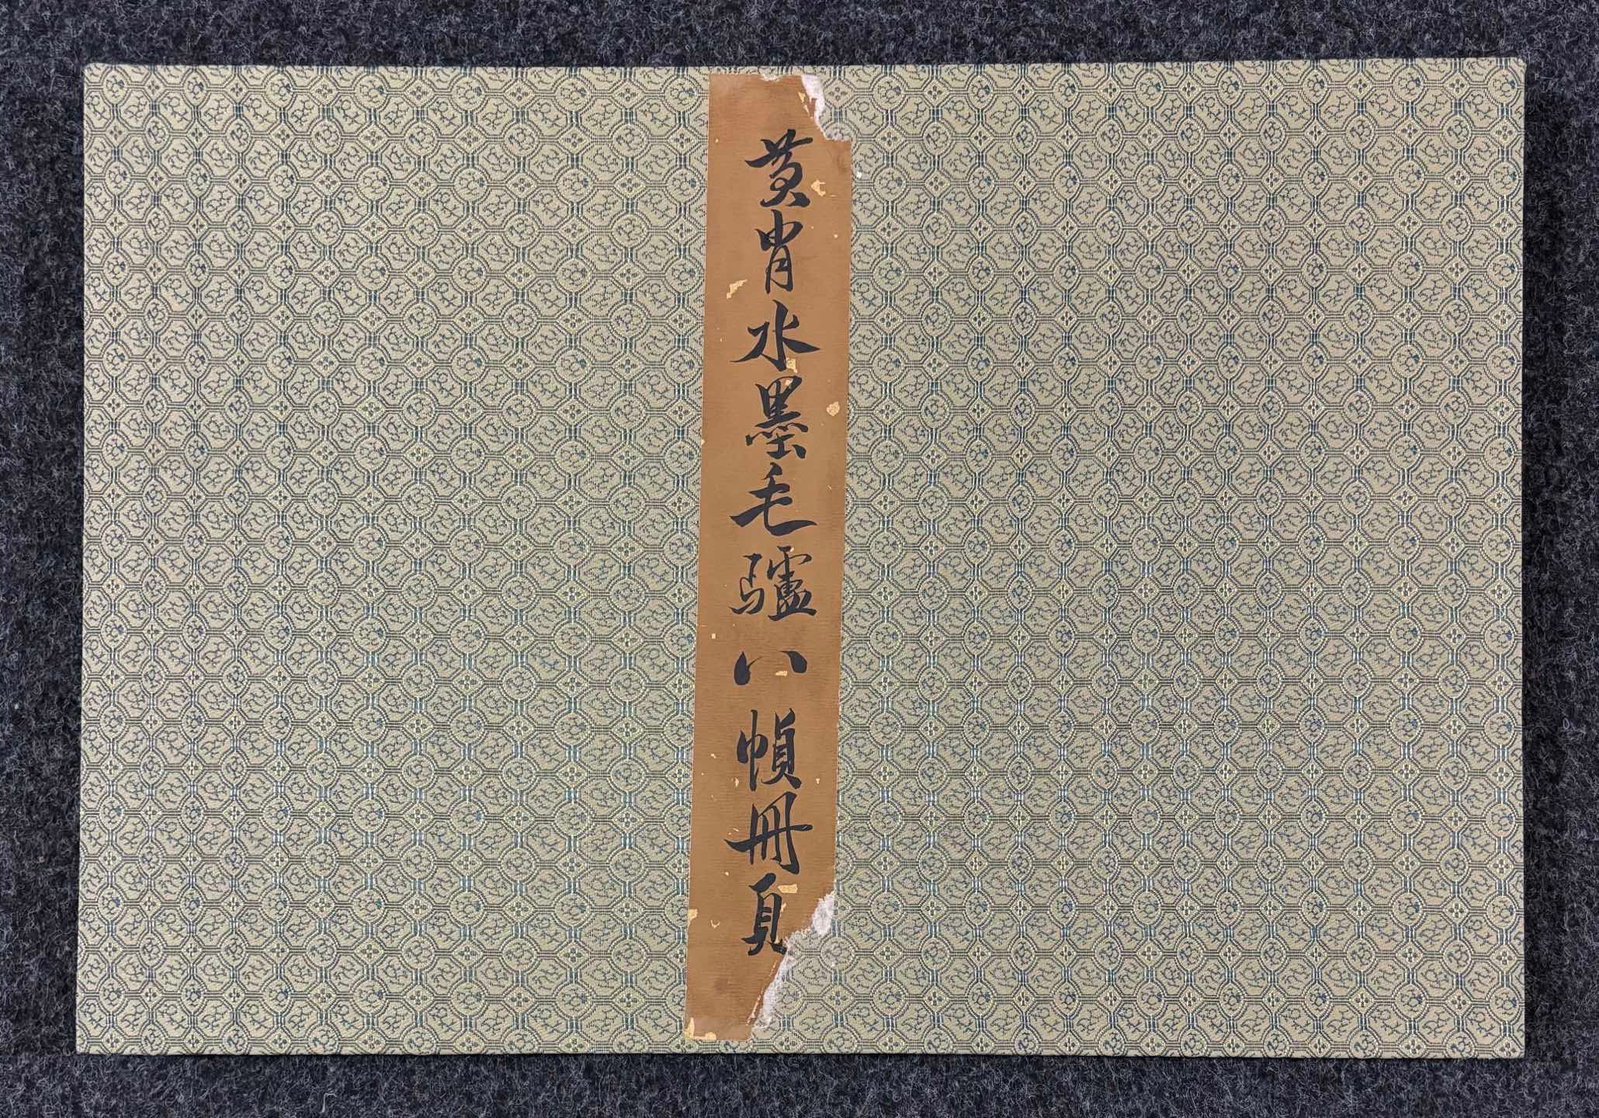 黄胄水墨毛驢八幀冊頁